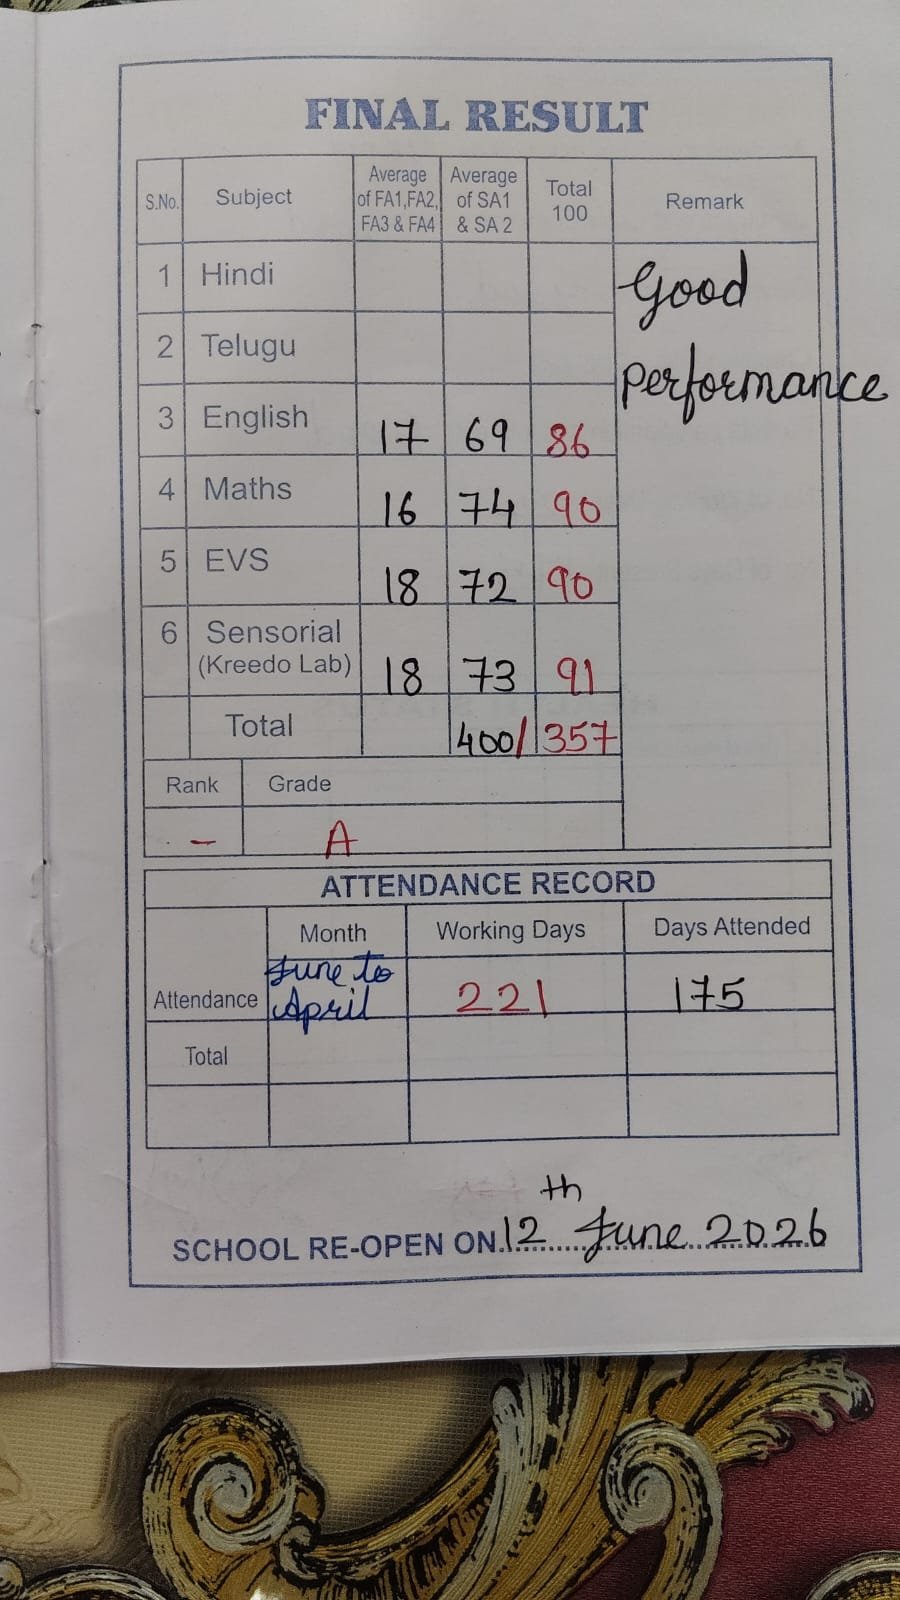 FINAL RESULT
S.No. Subject Average of FA1,FA2, FA3 & FA4 Average of SA1 & SA 2 Total 100 Remark
1 Hindi Good
2 Telugu performance
3 English 17 69 86
4 Maths 16 74 90
5 EVS 18 72 90
6 Sensorial
(Kreedo Lab) 18 73 91
Total 400/ 357
Rank Grade
- A
ATTENDANCE RECORD
Month Working Days Days Attended
Attendance June to April 221 175
Total
th
SCHOOL RE-OPEN ON 12 June 2026